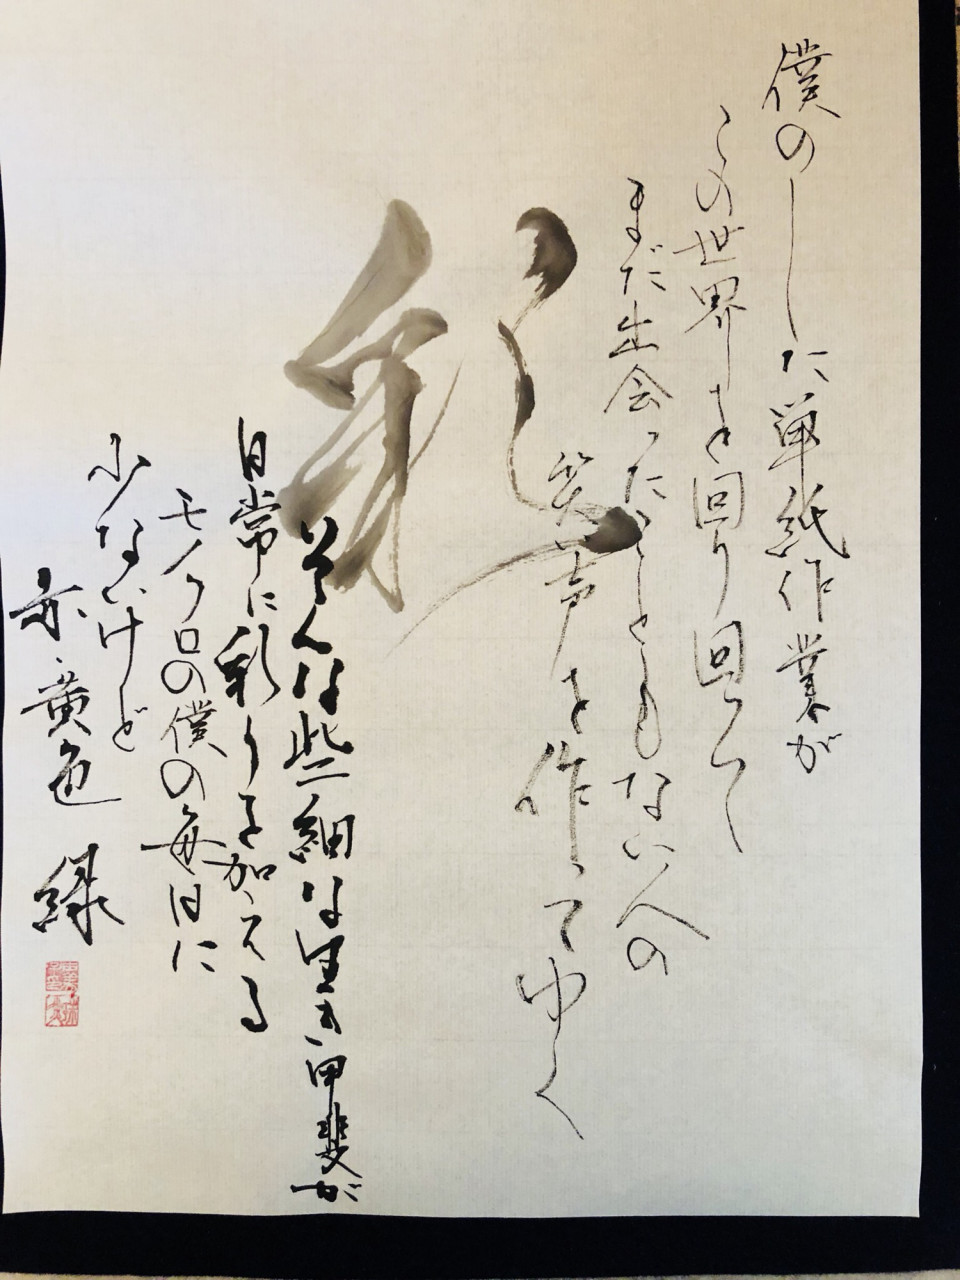 僕のした単紙作業が
この世界を回り回って
まだ出会ったこともない人の
笑い声を作ってゆく
彩
そんな些細な生き甲斐が
日常に彩りを加える
モノクロの僕の毎日に
少ないけど
赤 黄色 緑